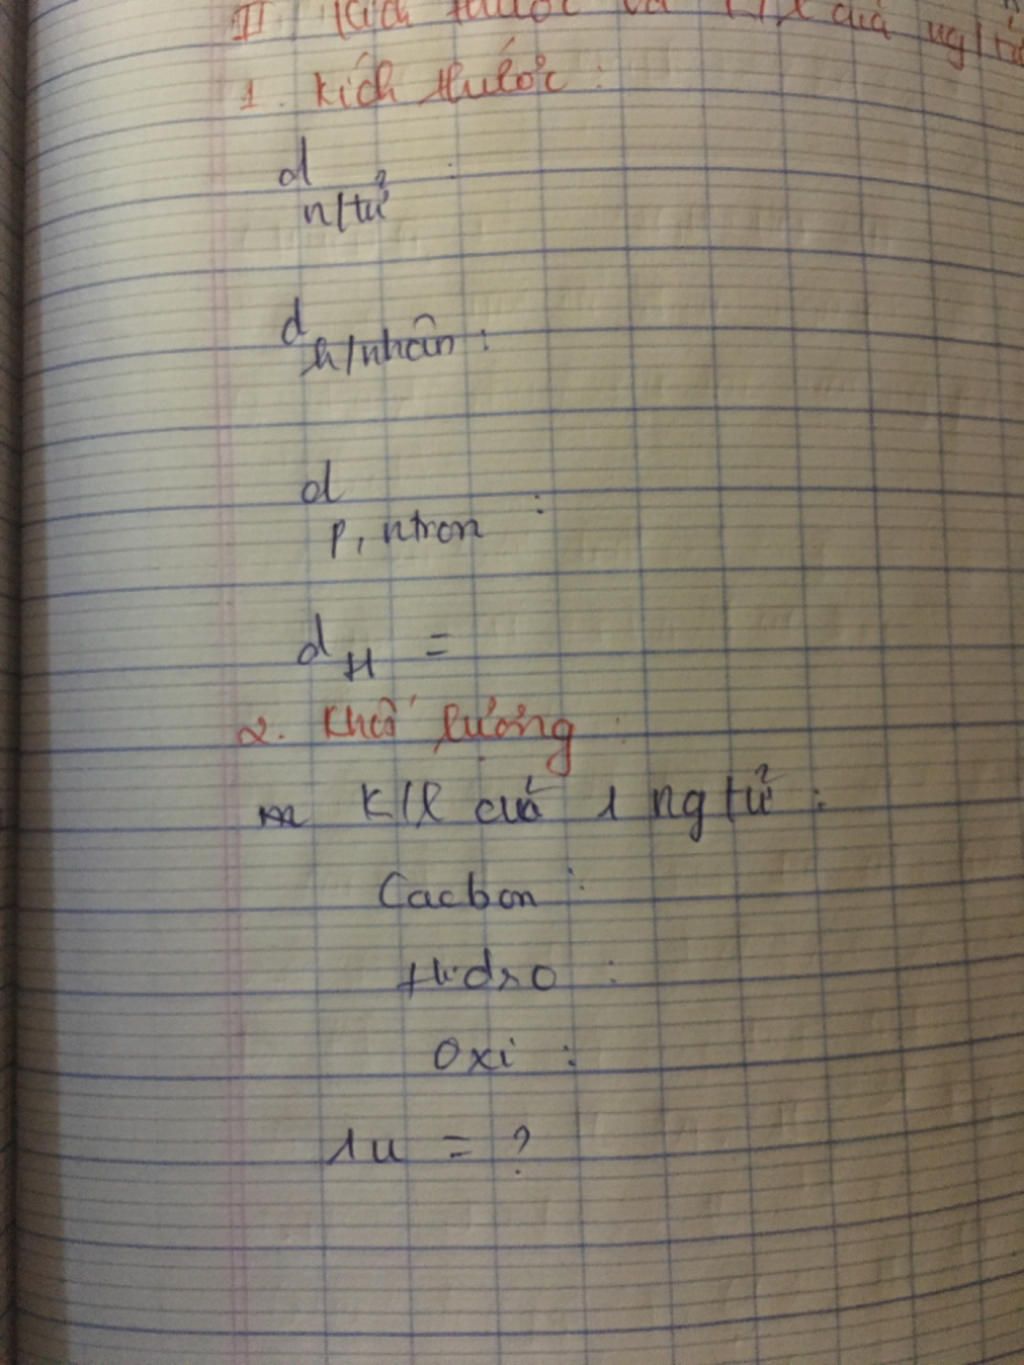 II / Kích thước và K/l của ng/tử
1. Kích thước :
d n/tử :
d h/nhân :
d p, ntron :
d H =
2. Khối lượng :
K/l của 1 ng tử :
Cacbon :
Hidro :
Oxi :
1u = ?